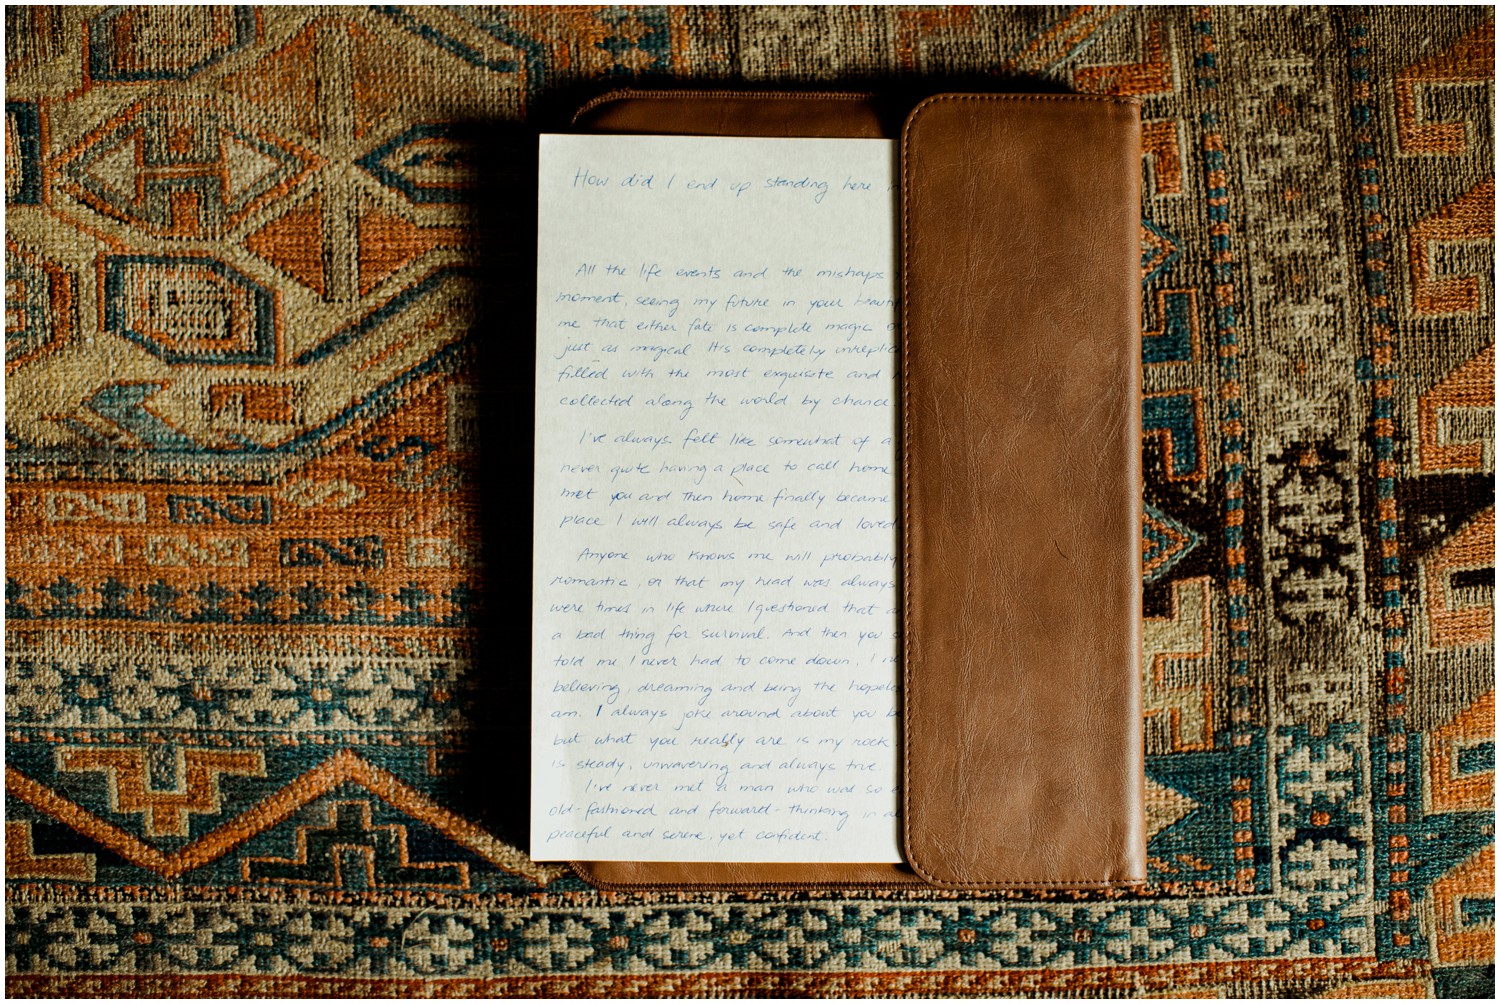 How did I end up standing here
All the life events and the mishaps
moment, seeing my future in your
me that either fate is complete magic
just as magical. It's completely
filled with the most exquisite and
collected along the world by chance
I've always felt like somewhat of a
never quite having a place to call home
met you and then home finally became
place I will always be safe and loved
Anyone who knows me will probably
romantic, or that my head was always
were times in life where I questioned that
a bad thing for survival. And then you
told me I never had to come down. I
believing, dreaming and being the
am. I always joke around about you
but what you really are is my rock.
is steady, unwavering and always true.
I've never met a man who was so
old-fashioned and forward-thinking in
peaceful and serene, yet confident.